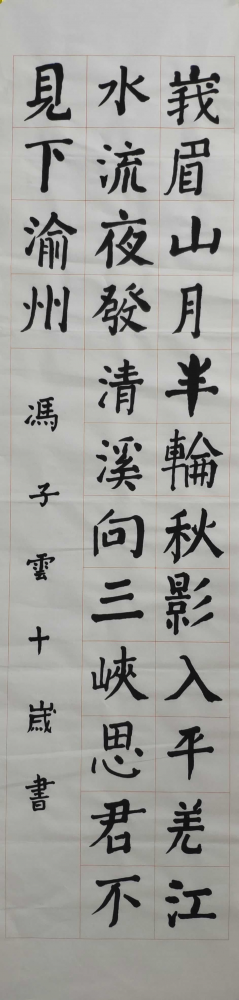 峩眉山月半輪秋影入平羌江
水流夜發清溪向三峽思君不
見下渝州
馮子雲十歲書